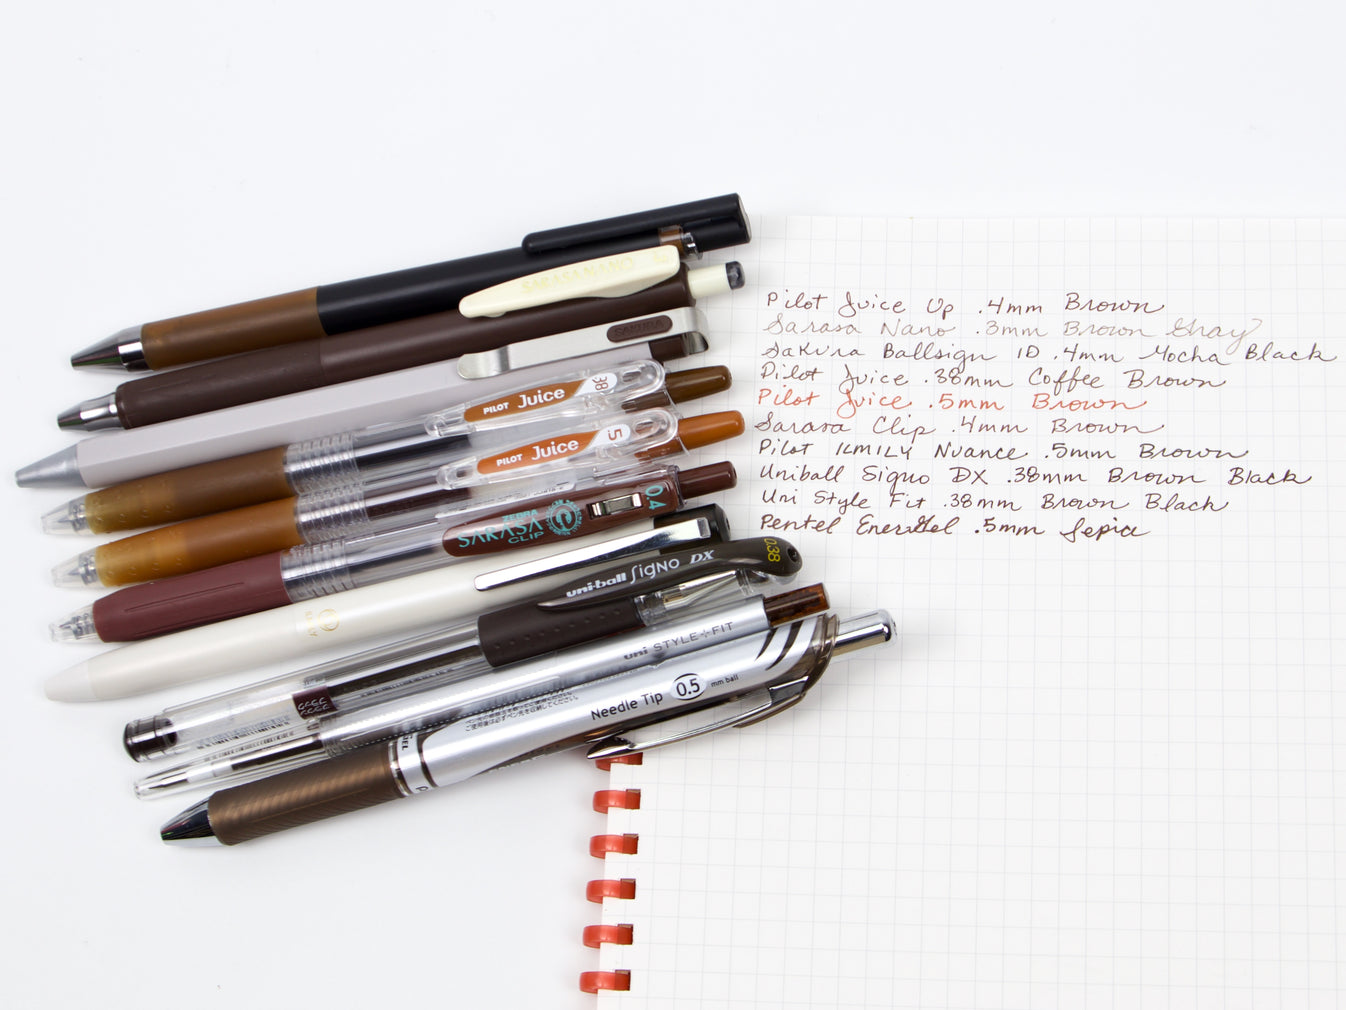 SAKURA
PILOT Juice 38
PILOT Juice 5
ZEBRA
SARASA
CLIP
0.4
uni-ball SigNo DX 0.38
uni STYLE+FIT
Needle Tip 0.5 mm ball
Pilot Juice Up .4mm Brown
Sarasa Nano .3mm Brown Gray
Sakura Ballsign iD .4mm Mocha Black
Pilot Juice .38mm Coffee Brown
Pilot Juice .5mm Brown
Sarasa Clip .4mm Brown
Pilot ILMILY Nuance .5mm Brown
Uniball Signo DX .38mm Brown Black
Uni Style Fit .38mm Brown Black
Pentel EnerGel .5mm Sepia